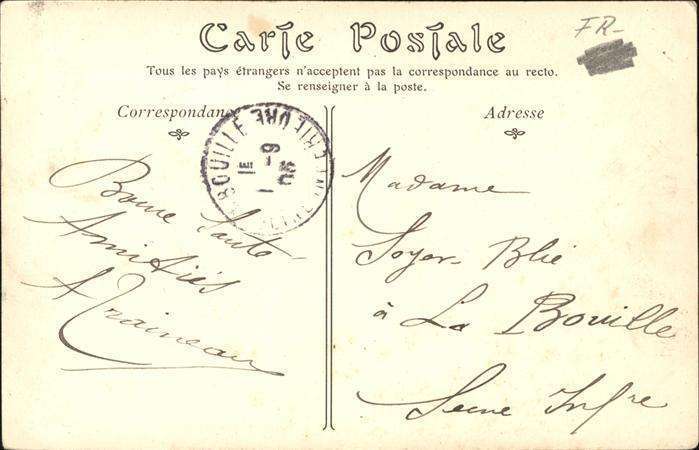 FR-
Carte Postale
Tous les pays étrangers n'acceptent pas la correspondance au recto.
Se renseigner à la poste.
Correspondance
Bonne Santé
Amitiés
Adresse
Madame
Soyer-Blié
à La Bouille
Seine Infre
BOUILLE